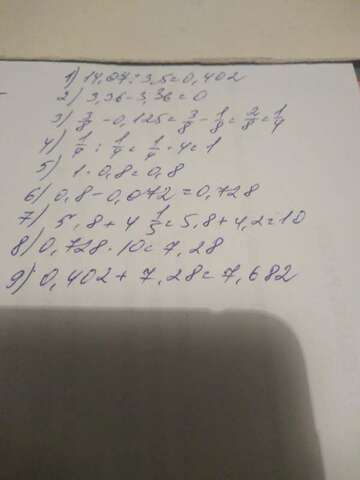 1) 14,07 : 3,5 = 0,402
2) 3,36 - 3,36 = 0
3) 3/8 - 0,125 = 3/8 - 1/8 = 2/8 = 1/4
4) 1/4 : 1/4 = 1/4 · 4 = 1
5) 1 · 0,8 = 0,8
6) 0,8 - 0,072 = 0,728
7) 5,8 + 4 1/5 = 5,8 + 4,2 = 10
8) 0,728 · 10 = 7,28
9) 0,402 + 7,28 = 7,682